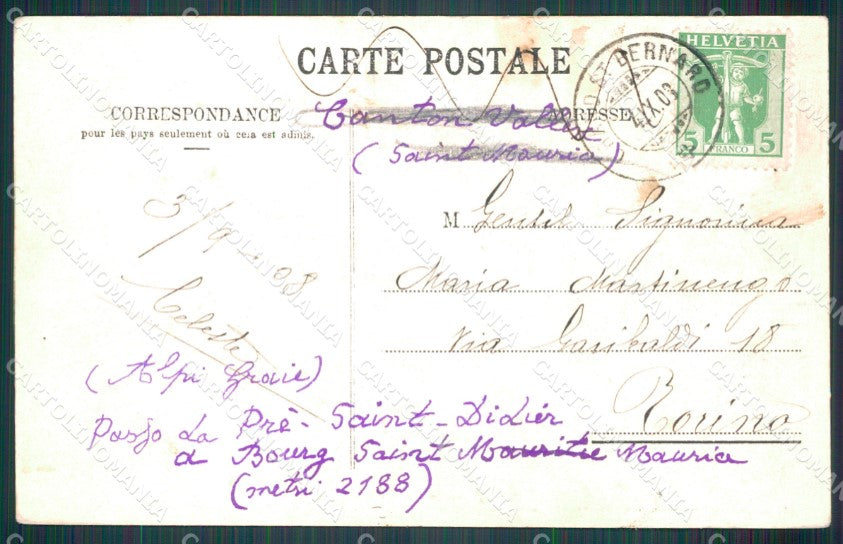 CARTE POSTALE
CORRESPONDANCE
pour les pays seulement où cela est admis.
ADRESSE
ST BERNARD
HELVETIA
5 5
FRANCO
Canton Vallese
(Saint Mauria)
M Gentil Signorina
Maria Martinengo
Via Garibaldi 18
Torino
3/9-08
Celeste
(Alpi Graie)
Passo La Prè-Saint-Didier
a Bourg Saint Mauritie Mauria
(metri 2188)
CARTOLINOMANIA